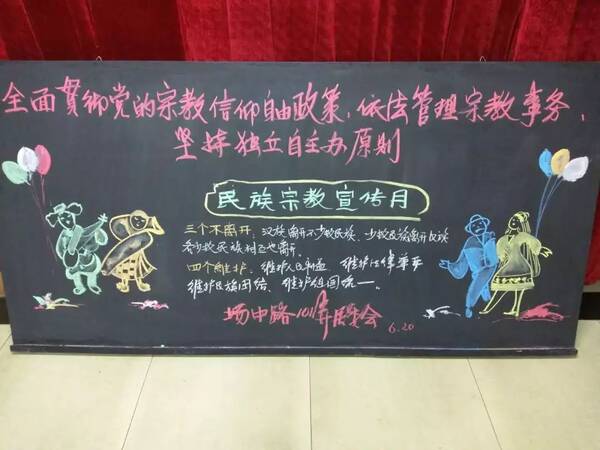 全面贯彻党的宗教信仰自由政策，依法管理宗教事务，
坚持独立自主办原则
民族宗教宣传月
三个不离开：汉族离开不少数民族、少数民族离开汉族
各少数民族相互也离开。
四个维护：维护人民利益 维护法律尊严
维护民族团结、维护祖国统一。
场中路101弄居委会
6.20